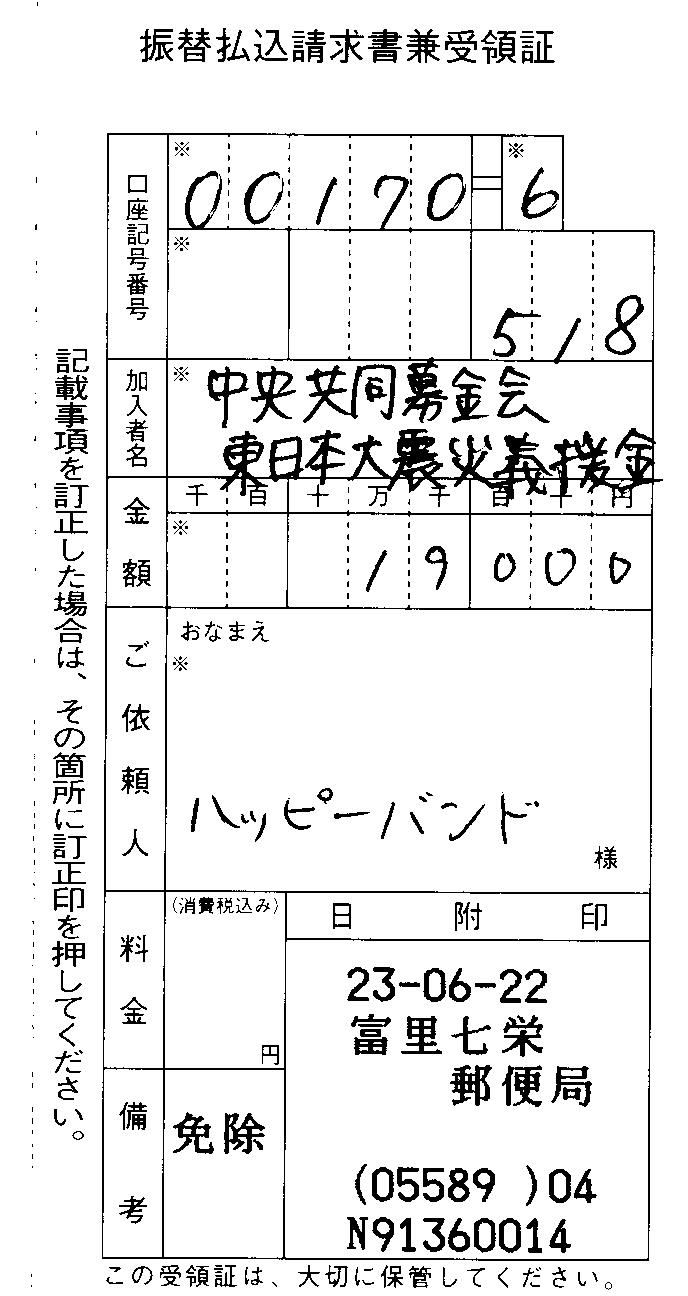 振替払込請求書兼受領証
口座記号番号
※
00170=6
※
※
518
加入者名
※
中央共同募金会
東日本大震災義援金
金額
千百十万千百十円
※
19000
ご依頼人
おなまえ
※
ハッピーバンド
様
料金
(消費税込み)
円
日附印
23-06-22
富里七栄
郵便局
(05589 )04
N91360014
備考
免除
記載事項を訂正した場合は、その箇所に訂正印を押してください。
この受領証は、大切に保管してください。